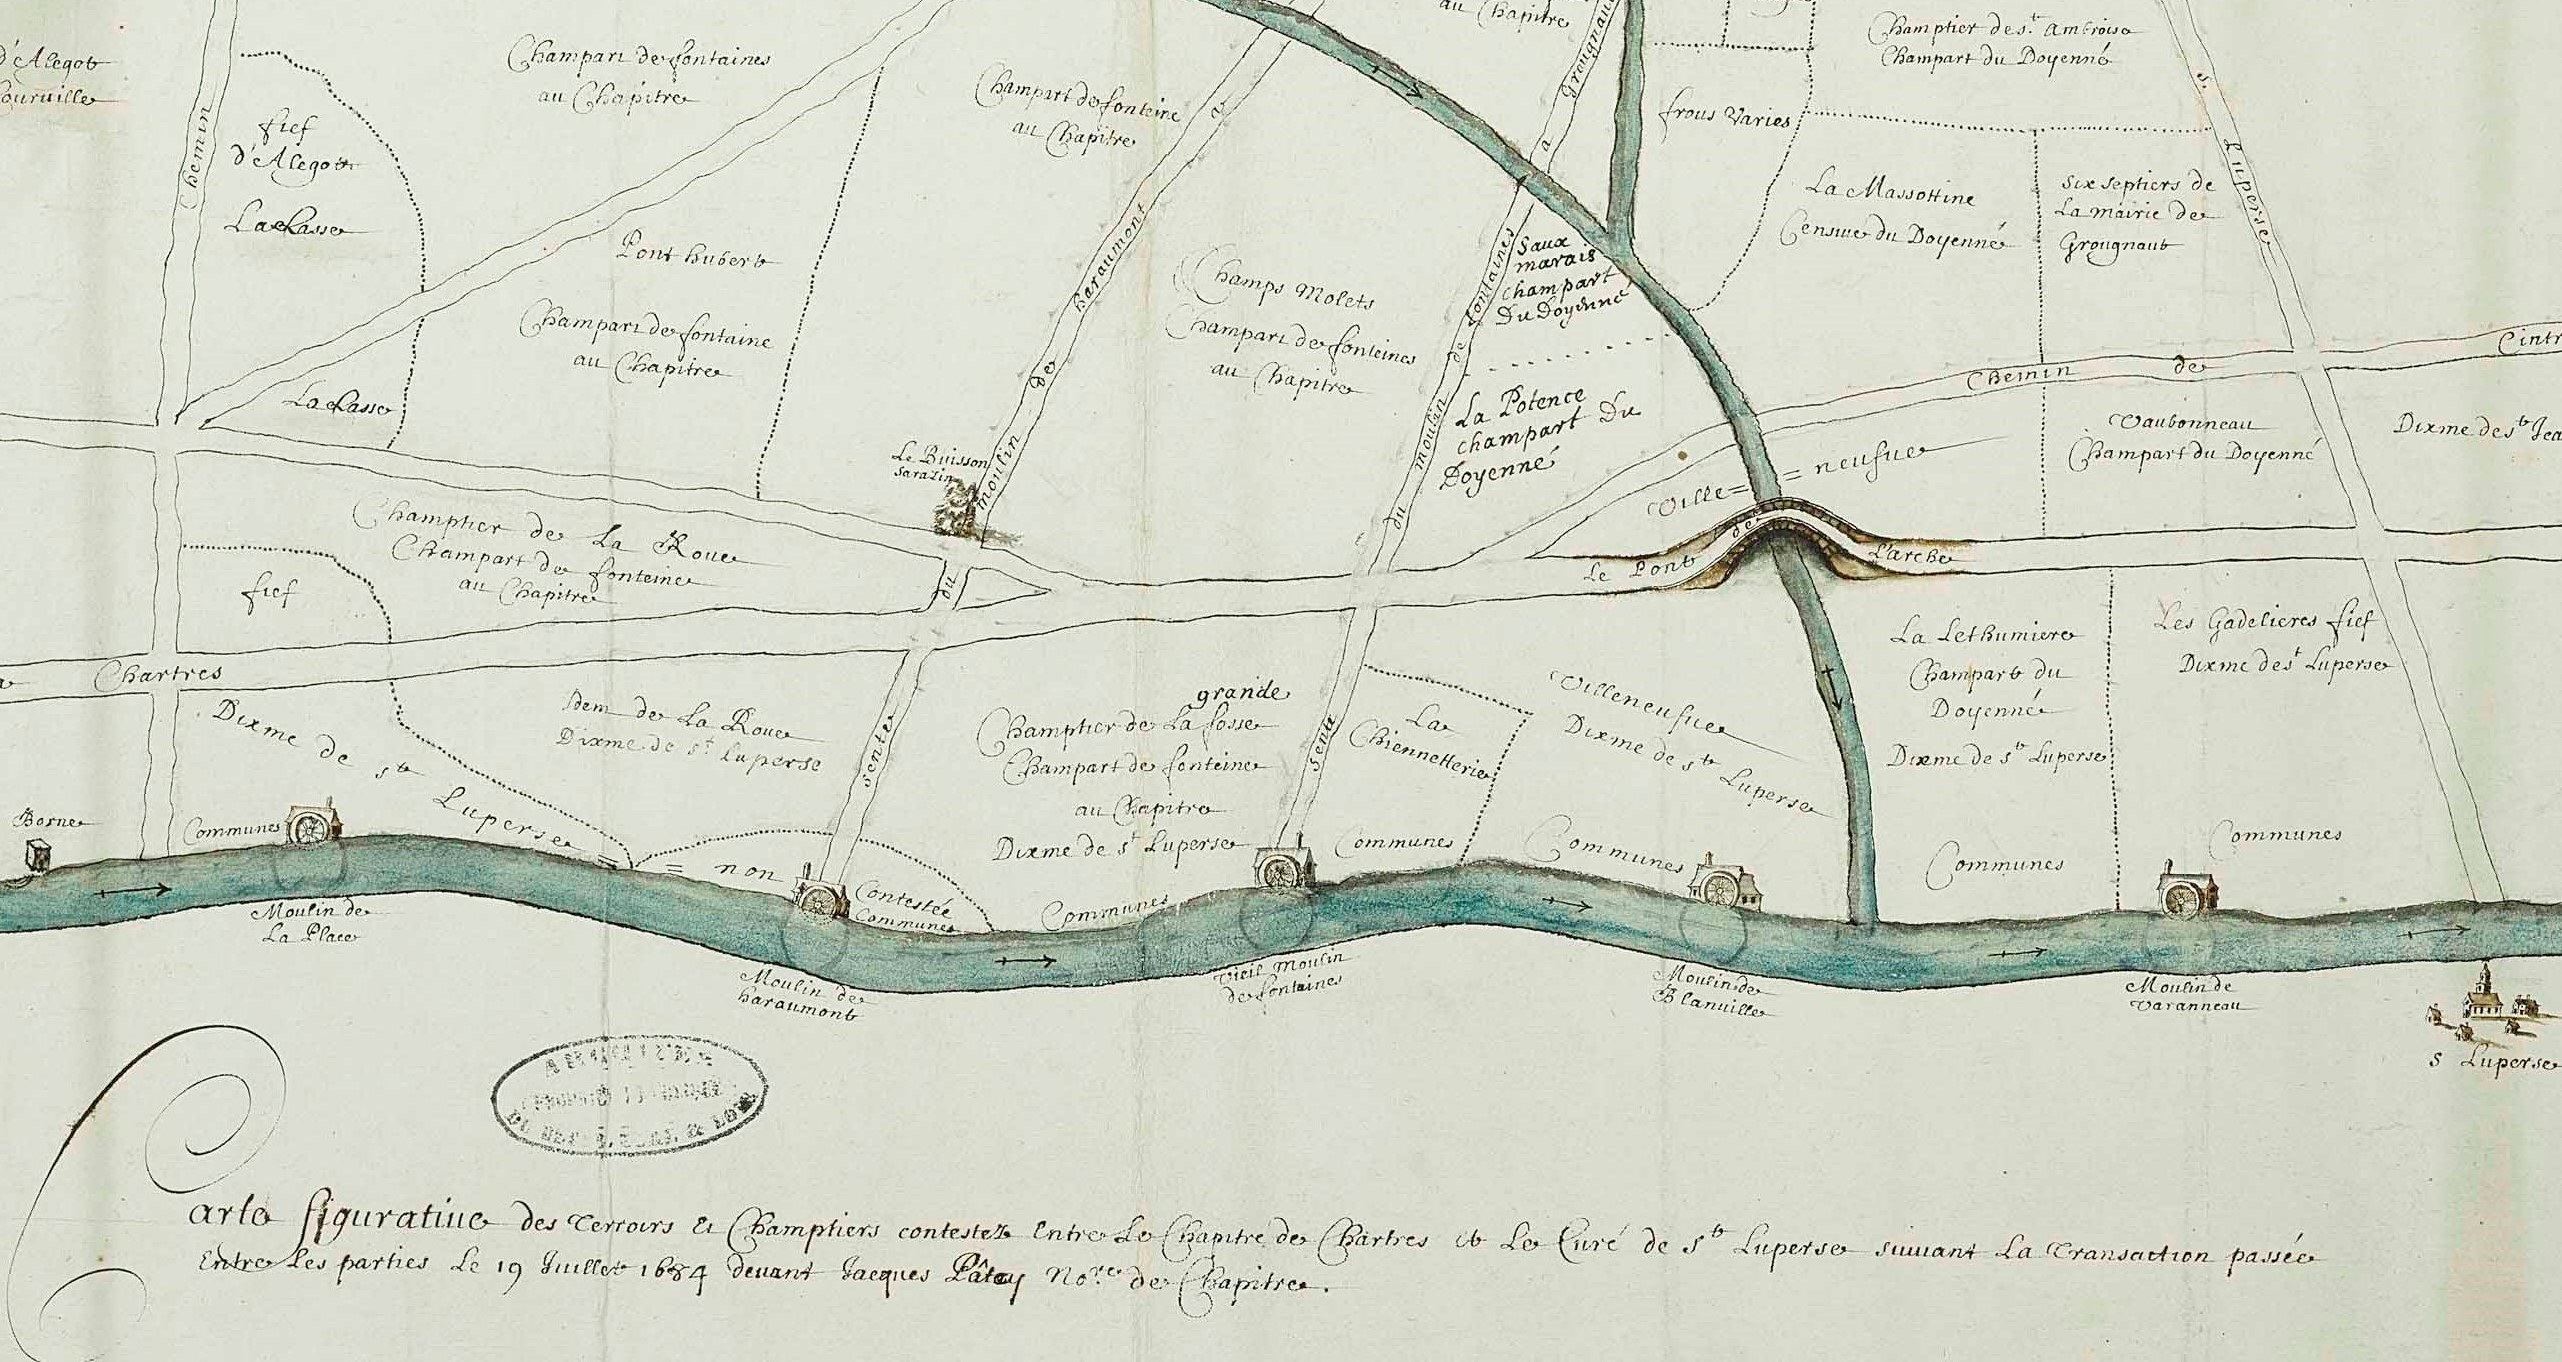 d'Alegot
Courville
Chemin
fief
d'Alegot
La Casse
Champart de fontaines
au Chapitre
Champart de fonteine
au Chapitre
au Chapitre
a Grougnaut
Champtier de st. Ambroise
Champart du Doyenné
frous Varies
La Massottine
Censive du Doyenné
Six septiers de
La mairie de
Grougnaut
S. Luperse
Pont hubert
Champart de fontaine
au Chapitre
La Casse
Champs Molets
Champart de fonteines
au Chapitre
Saux
marais
champart
Du Doyenné
La Potence
champart Du
Doyenné
Chemin de Cintr
Vaubonneau
Champart du Doyenné
Dixme de st Jea
Ville = = neufue
Le Buisson
Sarazin
du moulin de haraumont a
du moulin de fontaines a
Champtier de La Roue
Champart de fonteine
au Chapitre
fief
Le Pont de L'arche
a Chartres
Dixme de st Luperse = = non Contestée
Idem de La Roue
Dixme de st Luperse
Sente
grande
Champtier de La fosse
Champart de fonteine
au Chapitre
Dixme de st Luperse
Sente
La
Chiennetterie
Villeneufue
Dixme de st Luperse
La Lethumiere
Champart du
Doyenné
Dixme de st Luperse
Les Gadelieres fief
Dixme de st Luperse
Borne
Communes
Communes
Communes
Communes
Communes
Communes
Communes
Moulin de
La Place
Moulin de
haraumont
Vieil Moulin
de fontaines
Moulin de
Blanuille
Moulin de
Varanneau
S Luperse
arte figuratiue des Terroirs Et Champtiers contestez Entre Le Chapitre de Chartres et Le Curé de st Luperse suiuant La Transaction passée
Entre Les parties Le 19 Juillet 1684 deuant Jacques Nore de Chapitre.